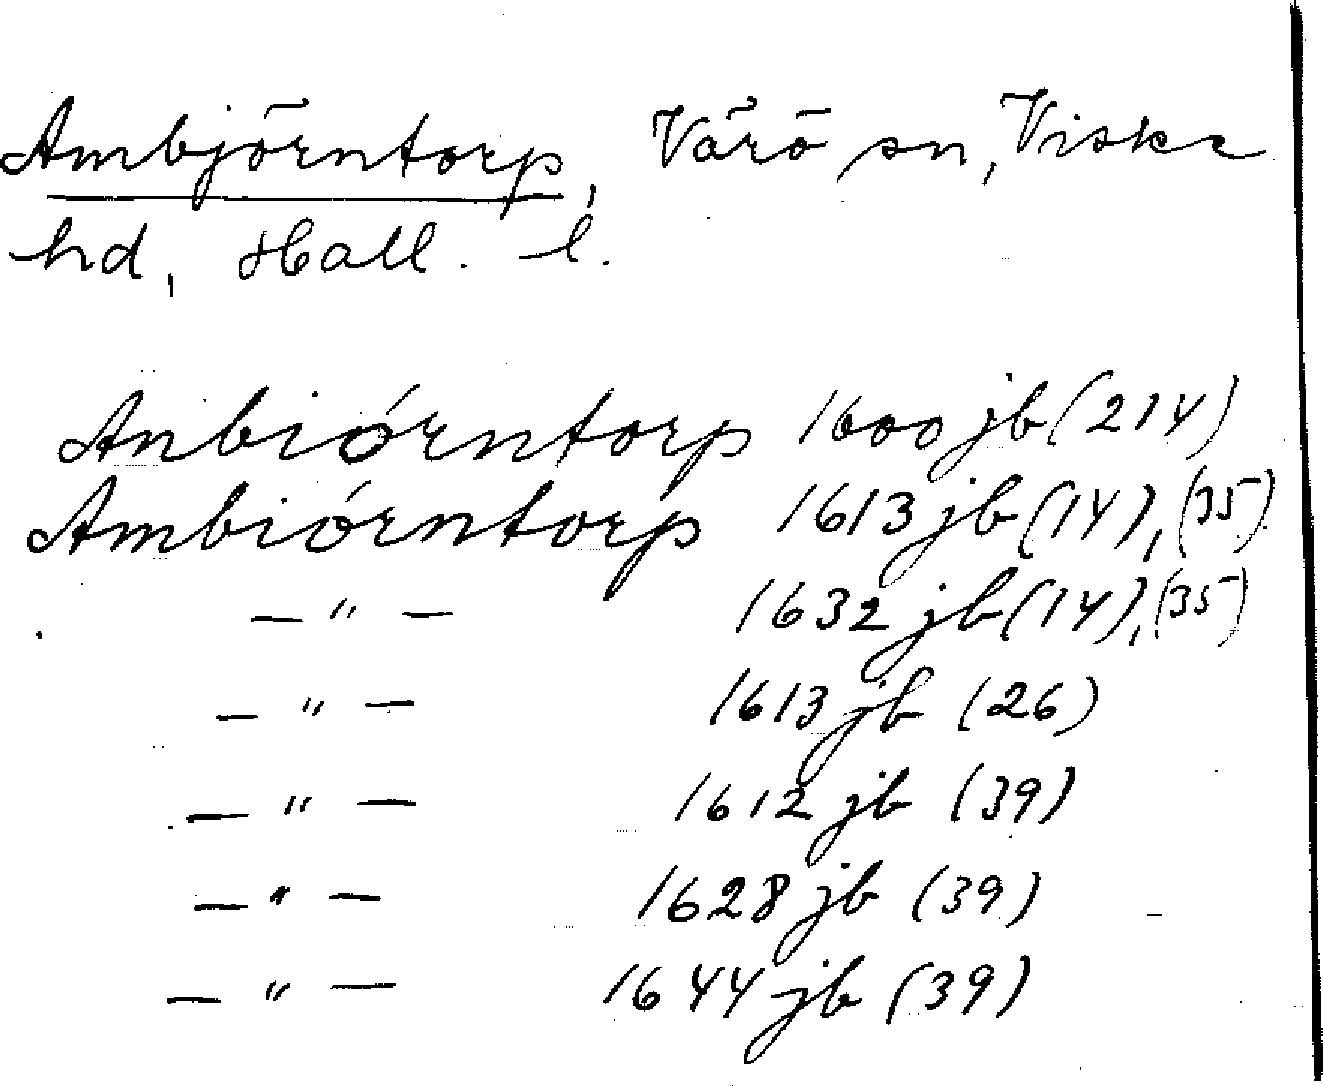 Ambjörntorp, Värö sn, Viske
hd, Hall. l.
Anbiórntorp 1600 jb (214)
Ambiórntorp 1613 jb (14), (35)
— " — 1632 jb (14), (35)
— " — 1613 jb (26)
— " — 1612 jb (39)
— " — 1628 jb (39)
— " — 1644 jb (39)